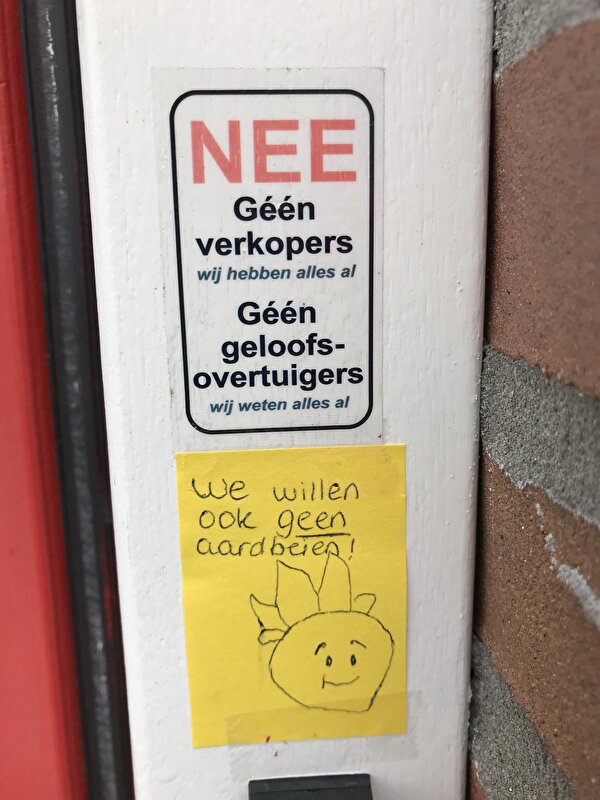 NEE
Géén
verkopers
wij hebben alles al
Géén
geloofs-
overtuigers
wij weten alles al
We willen
ook geen
aardbeien!